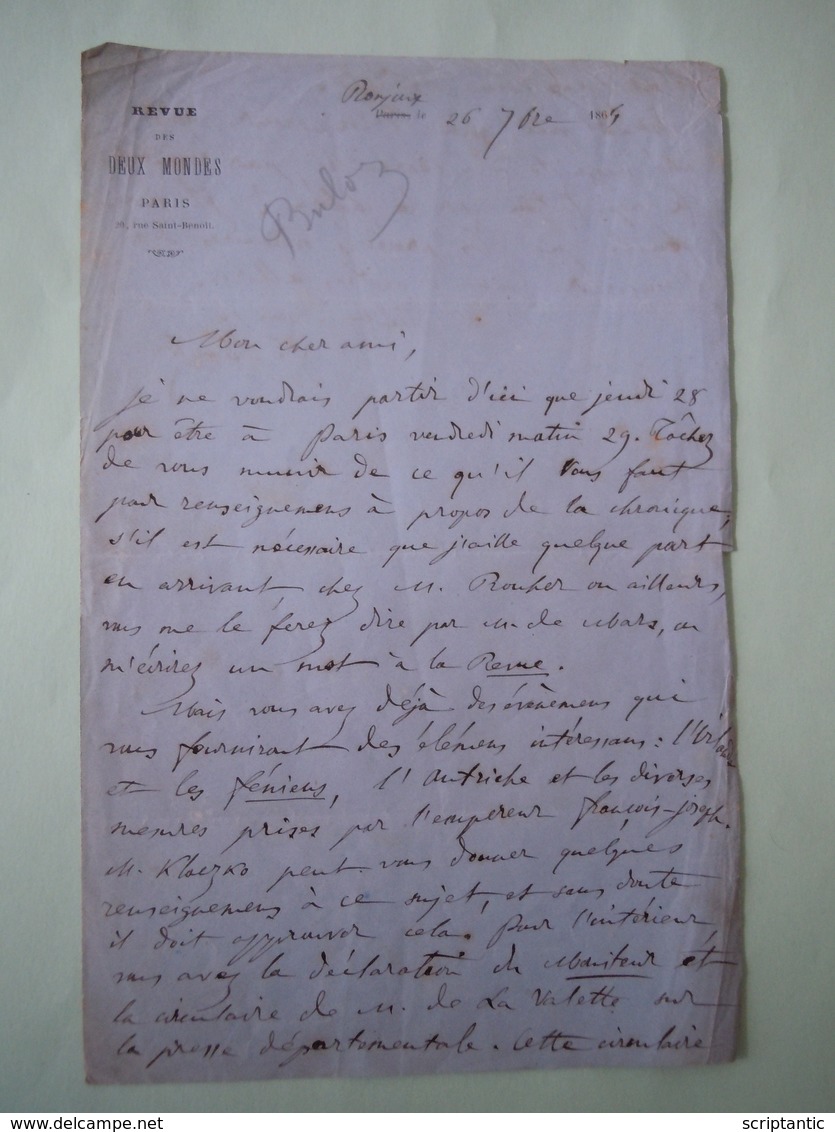 REVUE
DES
DEUX MONDES
PARIS
20, rue Saint-Benoît.
Ronjoux
Paris, le 26 7bre 1865
Buloz
Mon cher ami,
Je ne voudrais partir d'ici que jeudi 28
pour être à Paris vendredi matin 29. Tâchez
de vous munir de ce qu'il vous faut
pour renseignemens à propos de la chronique,
s'il est nécessaire que j'aille quelque part
en arrivant, chez M. Rouher ou ailleurs,
vous me le ferez dire par M. de Mars, ou
m'écrirez un mot à la Revue.
Mais vous avez déjà des évènemens qui
vous fourniront des élémens intéressans : l'Irlande
et les féniens, l'Autriche et les diverses
mesures prises par l'empereur françois-joseph.
M. Klaczko peut vous donner quelques
renseignemens à ce sujet, et sans doute
il doit approuver cela. Pour l'intérieur,
vous avez la déclaration du Moniteur et
la circulaire de M. de La Valette sur
la presse départementale. Cette circulaire
scriptantic